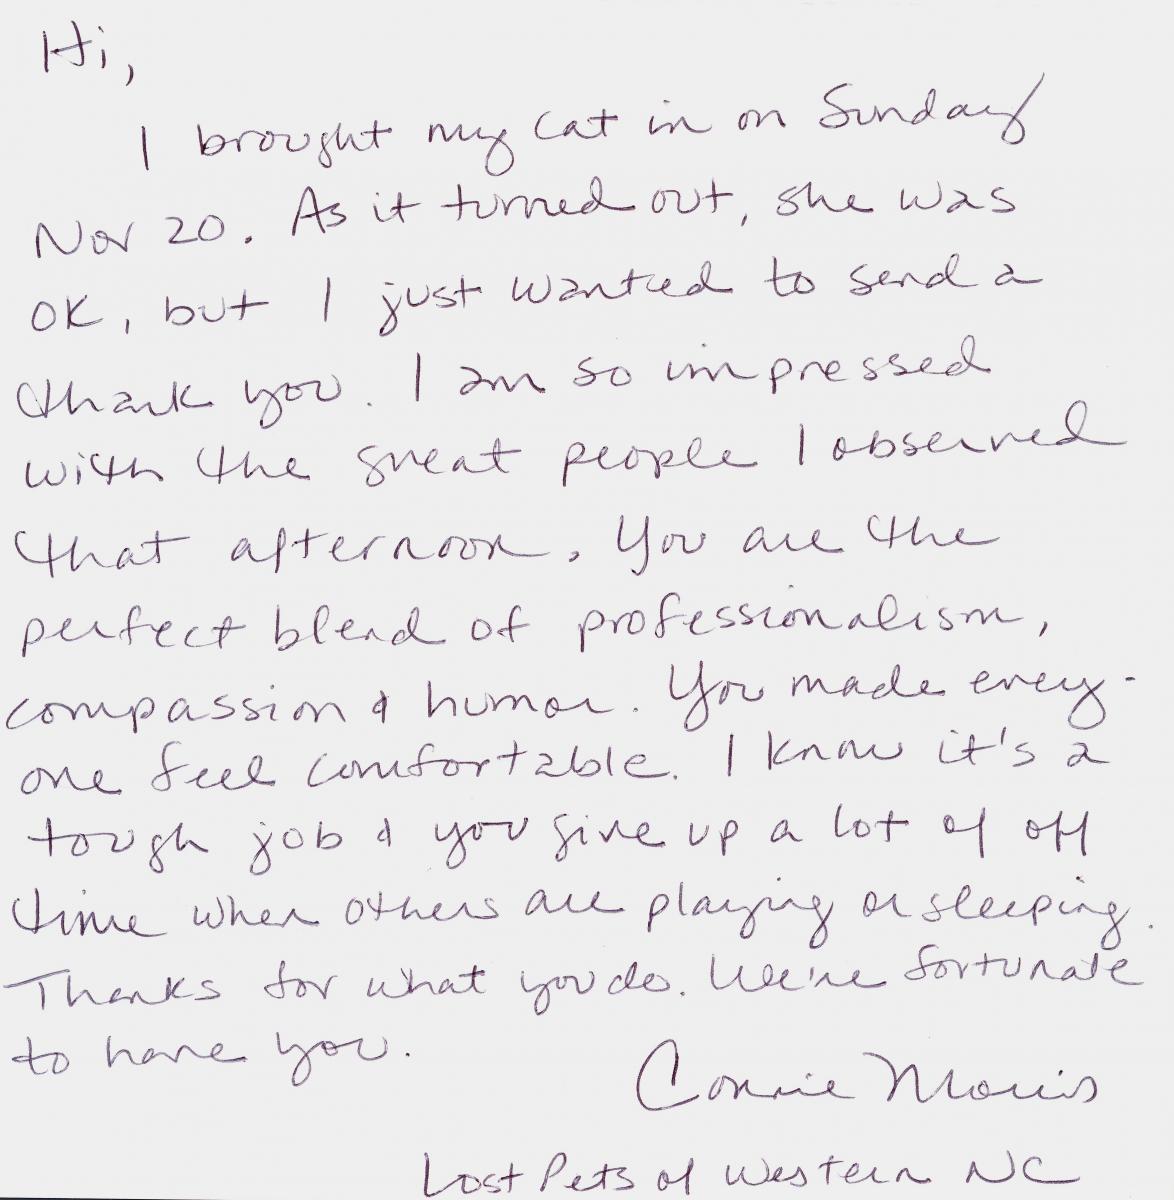 Hi,
I brought my cat in on Sunday
Nov 20. As it turned out, she was
OK, but I just wanted to send a
thank you. I am so impressed
with the great people I observed
that afternoon. You are the
perfect blend of professionalism,
compassion & humor. You made every-
one feel comfortable. I know it's a
tough job & you give up a lot of off
time when others are playing or sleeping.
Thanks for what you do. We're fortunate
to have you.
Connie Morris
Lost Pets of Western NC